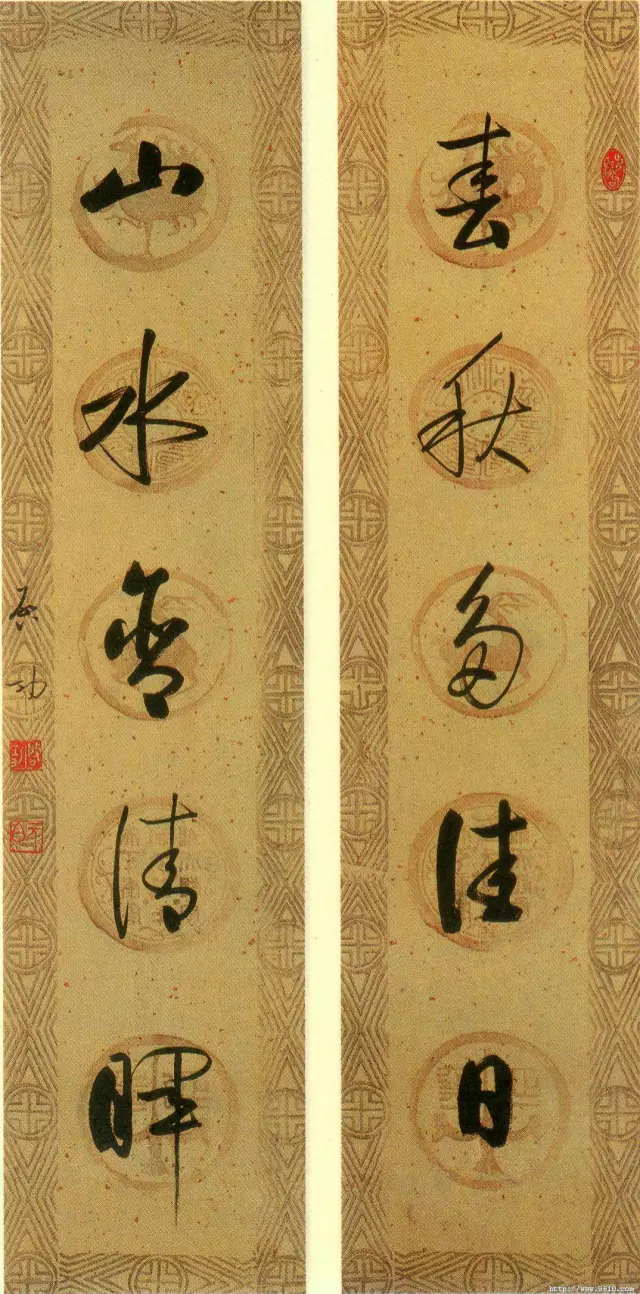 春秋多佳日
山水含清暉
启功
http://www.9610.com